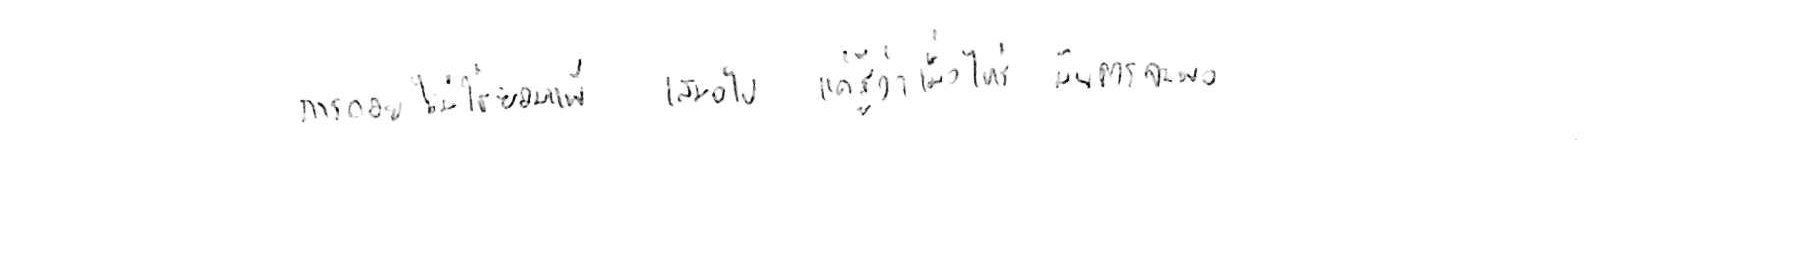 การถอย ไม่ใช่ยอมแพ้ เสมอไป แค่รู้ว่าเมื่อไหร่ มันควรจะพอ